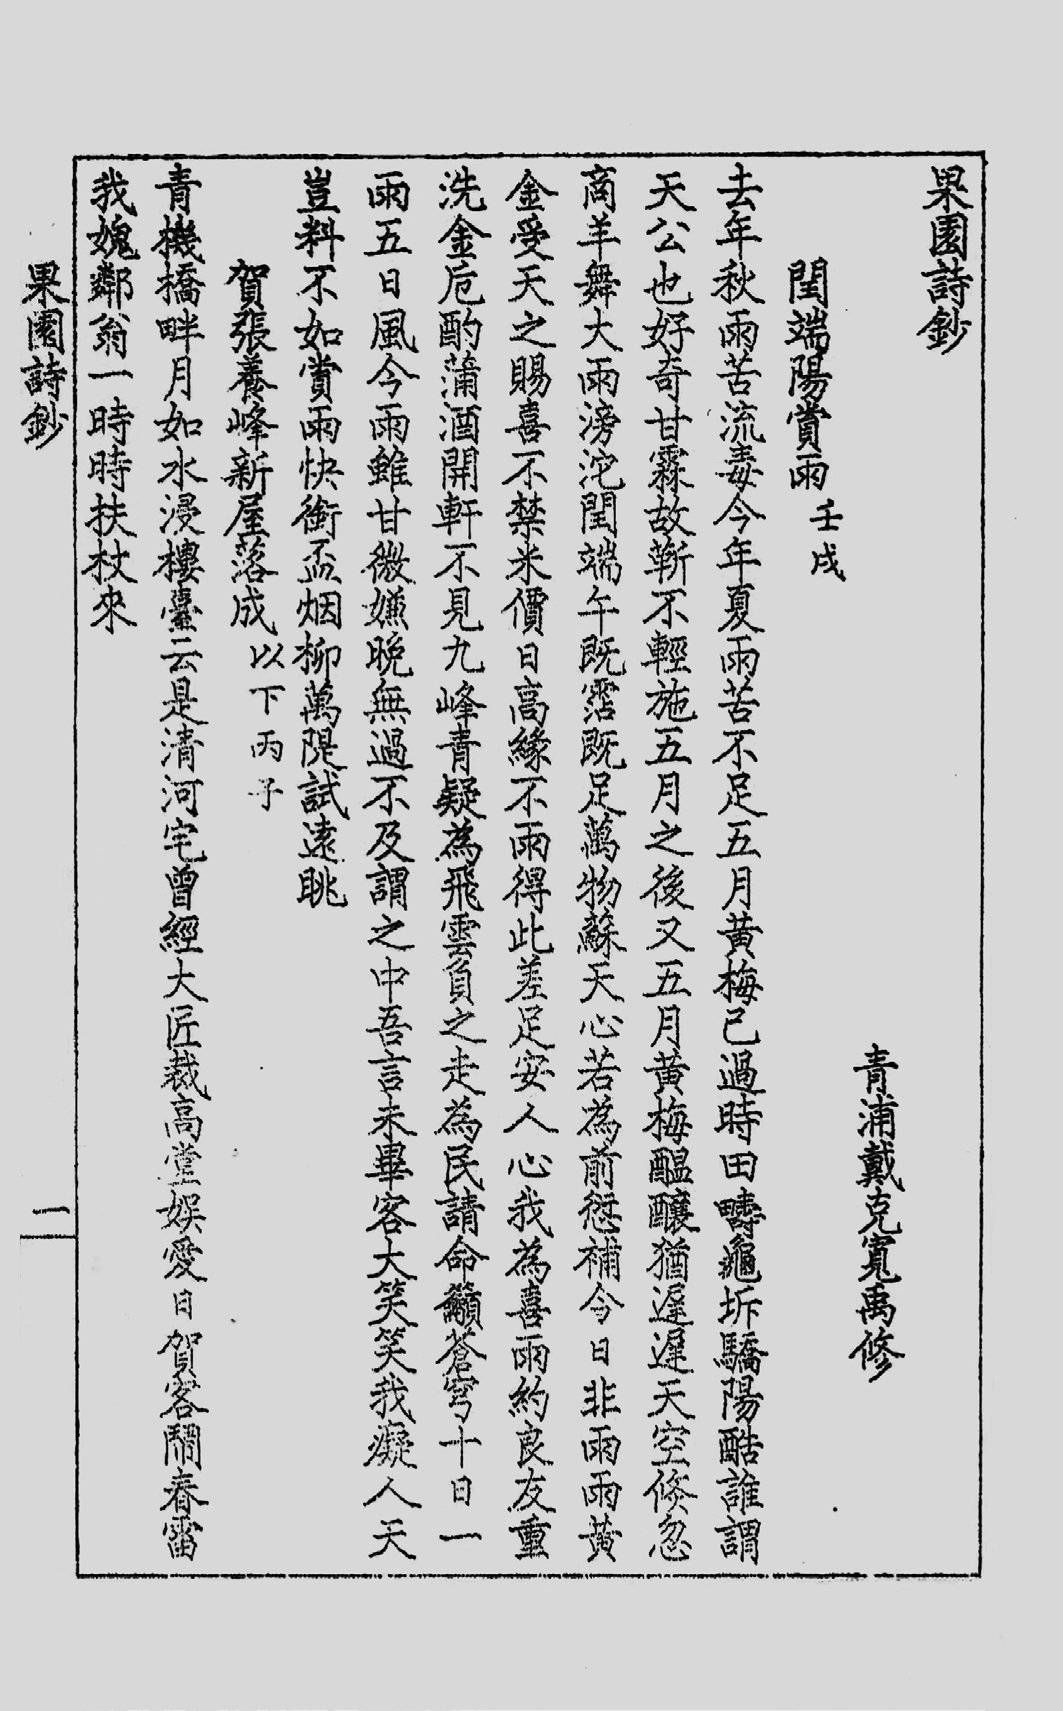 果園詩鈔
青浦戴克寬禹修
閏端陽賞雨 壬戌
去年秋雨苦流毒今年夏雨苦不足五月黃梅已過時田疇龜坼驕陽酷誰謂
天公也好奇甘霖故靳不輕施五月之後又五月黃梅醞釀猶遲遲天空倏忽
商羊舞大雨滂沱閏端午既霑既足萬物蘇天心若為前愆補今日非雨雨黃
金受天之賜喜不禁米價日高緣不雨得此差足安人心我為喜雨約良友重
洗金卮酌蒲酒開軒不見九峰青疑為飛雲負之走為民請命籲蒼穹十日一
雨五日風今雨雖甘微嫌晚無過不及謂之中吾言未畢客大笑笑我癡人天
豈料不如賞雨快銜盃烟柳萬隄試遠眺
賀張養峰新屋落成 以下丙子
青機橋畔月如水浸樓臺云是清河宅曾經大匠裁高堂娛愛日賀客鬧春雷
我媿鄰翁一時時扶杖來
果園詩鈔
一